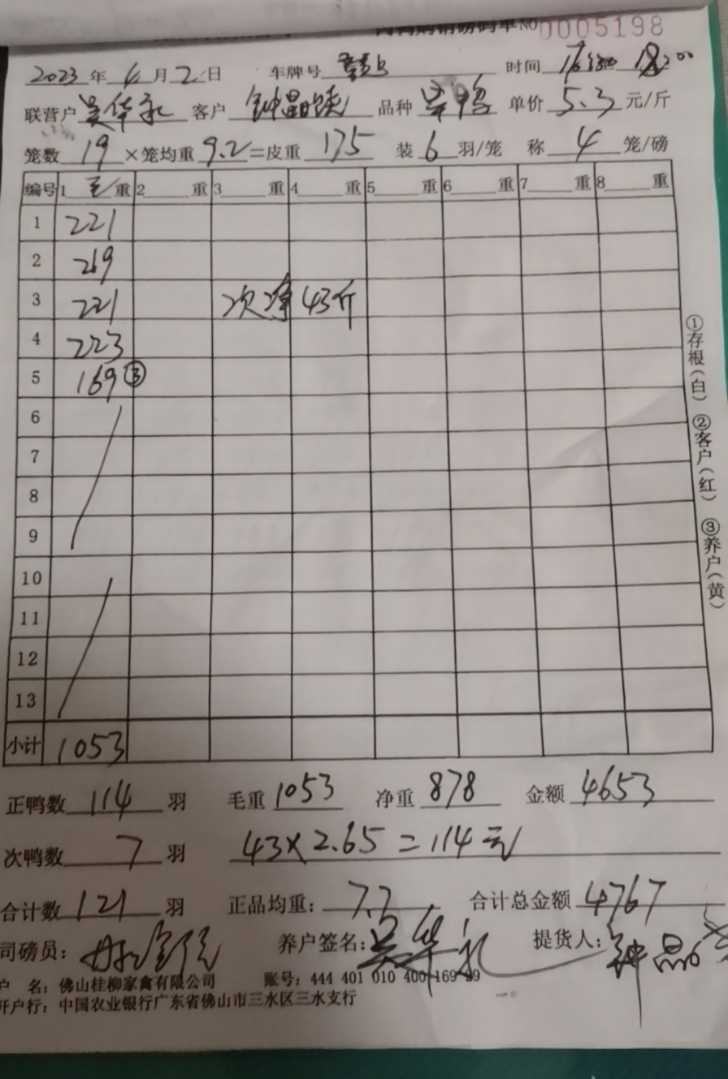 NO 0005198
2023 年 4 月 2 日 车牌号 时间
联营户 吴华永 客户 钟 品种 单价 5.3 元/斤
笼数 19 ×笼均重 9.2 =皮重 175 装 6 羽/笼 称 4 笼/磅
编号 1 毛 重 2 重 3 重 4 重 5 重 6 重 7 重 8 重
1 221
2 219
3 221 次净43斤
4 223
5 169 ③
6
7
8
9
10
11
12
13
小计 1053
正鸭数 114 羽 毛重 1053 净重 878 金额 4653
次鸭数 7 羽 43×2.65=114元
合计数 121 羽 正品均重: 7.7 合计总金额 4767
司磅员: 养户签名: 吴华永 提货人: 钟
户 名: 佛山桂柳家禽有限公司 账号: 444 401 010 400 169 99
开户行: 中国农业银行广东省佛山市三水区三水支行
①存根(白) ②客户(红) ③养户(黄)